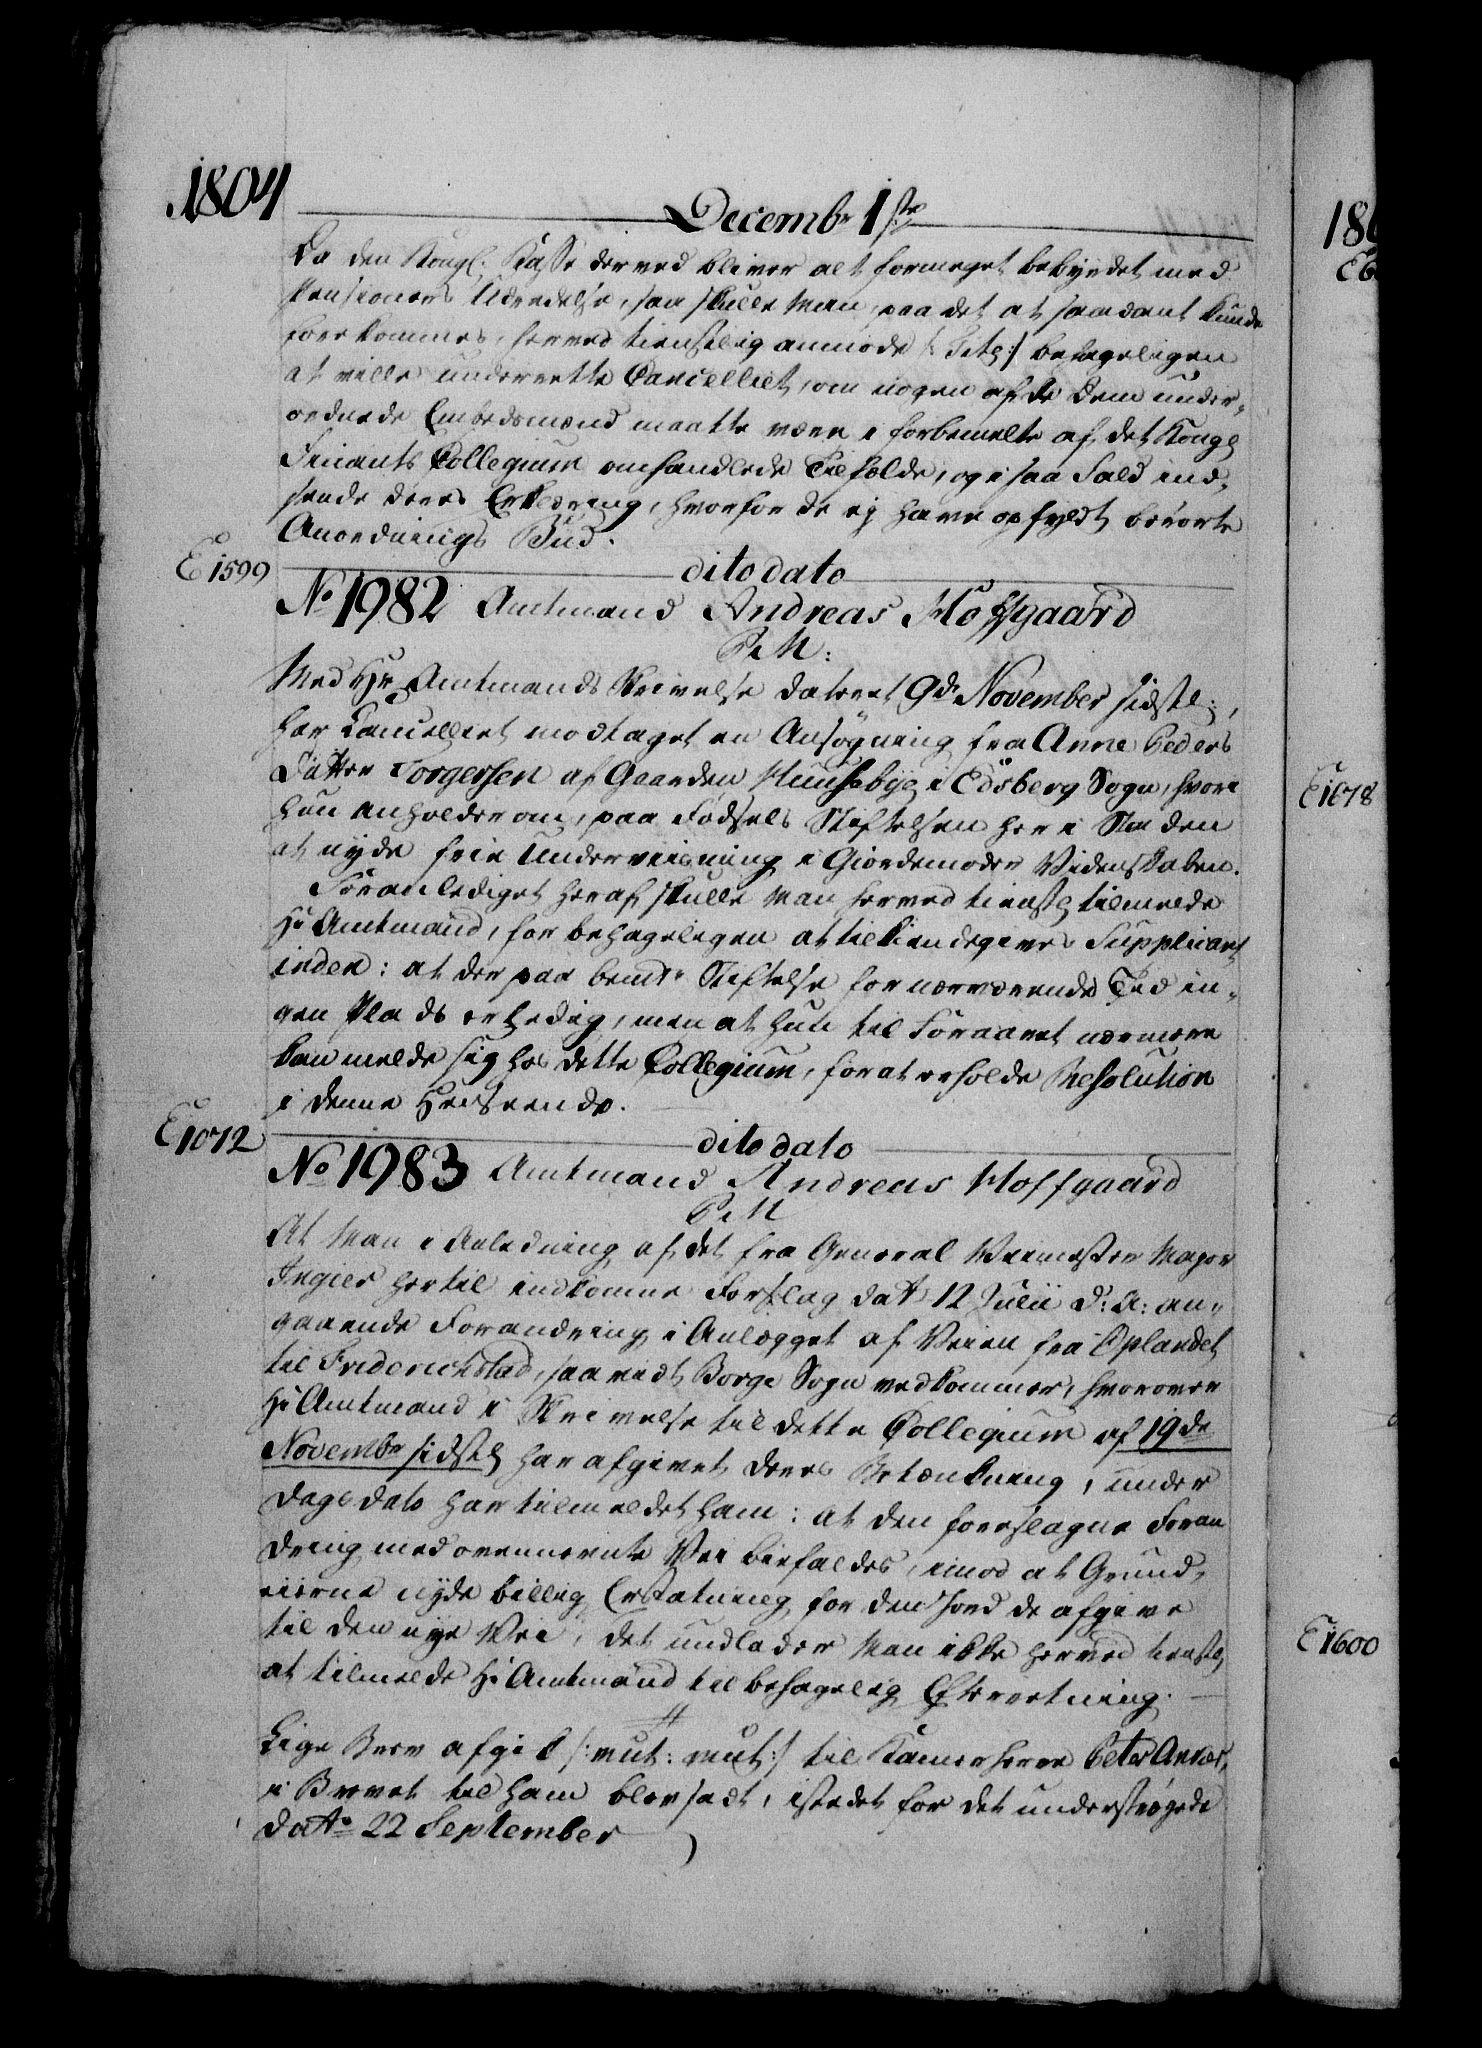 1804
Decembr 1ste
Da den Kongl: Kasse derved bliver alt formeget bebyrdet med
Pensioners Udredelse, saa skulle Man, paa det at saadant kunde
forekommes, herved tienstlig anmode /: Titl :/ behageligen
at ville underrette Cancelliet, om nogen af de Dem under-
ordnede Embedsmænd maatte være i forbemelte af det Kongl
Finants Collegium omhandlede Tilfælde, og i saa Fald ind-
sende deres Erklæring, hvorfor de ej have opfyldt berørte
Anordnings Bud.
E 1599
dito dato
No 1982 Amtmand Andreas Hoffgaard
P. M:
Med Hr Amtmands Skrivelse dateret 9de November sidstl:,
har Cancelliet modtaget en Ansøgning fra Anne Peders
Datter Torgersen af Gaarden Huusebye i Edsberg Sogn, hvori
hun anholder om, paa Fødsels Stiftelsen her i Staden
at nyde frie Underviisning i Giordemoder Videnskaben.
Foranlediget heraf skulle Man herved tienstl tilmelde
Hr Amtmand, for behageligen at tilkiendegives Supplicant
inden: at der paa bemte Stiftelse for nærværende Tid in-
gen Plads er ledig, men at hun til Foraaret nærmere
kan melde sig hos dette Collegium, for at erholde Resolution
i denne Henseende.
E 1072
dito dato
No 1983 Amtmand Andreas Hoffgaard
P. M
At Man i Anledning af det fra General Veimester Major
Ingier hertil indkomne Forslag dat 12 Julii d: A: an-
gaaende Forandring i Anlægget af Veien fra Oplandet
til Friderichstad, saavidt Borge Sogn vedkommer, hvorover
Hr Amtmand i Skrivelse til dette Collegium af 19de
Novembr sidstl har afgivet deres Betænkning, under
Dags Dato har tilmeldet ham: at den foreslagne Foran
dring med ovennevnte Vei bifaldes, imod at Grund-
eierne nyde billig Erstatning for den Jord de afgive
til den nye Vei, det undlader Man ikke herved tienstl
at tilmelde Hr Amtmand til behagelig Efterretning.
#
Lige Brev afgik /: mut: mut :/ til Kammerherre Peter Anker,
i Brevet til ham blev sadt, istedet for det understrøgede
dato 22 September
180
E 1678
E 1600